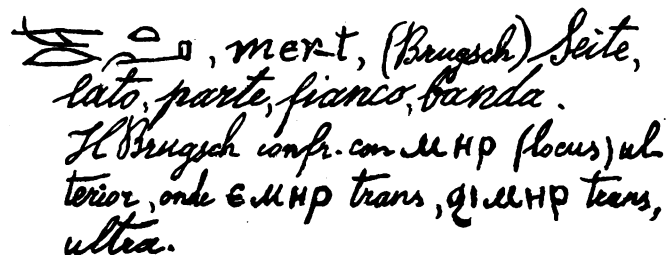 , mer-t, (Brugsch) Seite,
lato, parte, fianco, banda.
Il Brugsch confr. con ⲙⲏⲣ (locus) ul-
terior, onde ⲉⲙⲏⲣ trans, ϩⲓⲙⲏⲣ trans,
ultra.